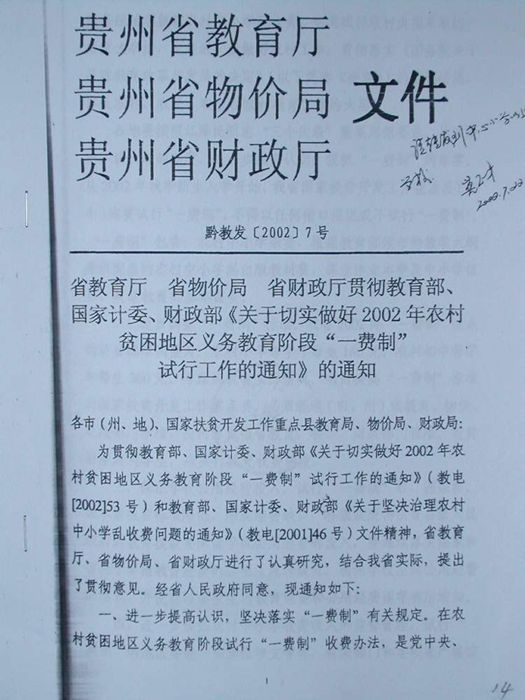 贵州省教育厅
贵州省物价局 文件
贵州省财政厅
黔教发〔2002〕7号
省教育厅 省物价局 省财政厅贯彻教育部、
国家计委、财政部《关于切实做好2002年农村
贫困地区义务教育阶段“一费制”
试行工作的通知》的通知
各市（州、地）、国家扶贫开发工作重点县教育局、物价局、财政局：
为贯彻教育部、国家计委、财政部《关于切实做好2002年农
村贫困地区义务教育阶段“一费制”试行工作的通知》（教电
[2002]53号）和教育部、国家计委、财政部《关于坚决治理农村
中小学乱收费问题的通知》（教电[2001]46号）文件精神，省教育
厅、省物价局、省财政厅进行了认真研究，结合我省实际，提出
了贯彻意见。经省人民政府同意，现通知如下：
一、进一步提高认识，坚决落实“一费制”有关规定。在农
村贫困地区义务教育阶段试行“一费制”收费办法，是党中央、
1
14